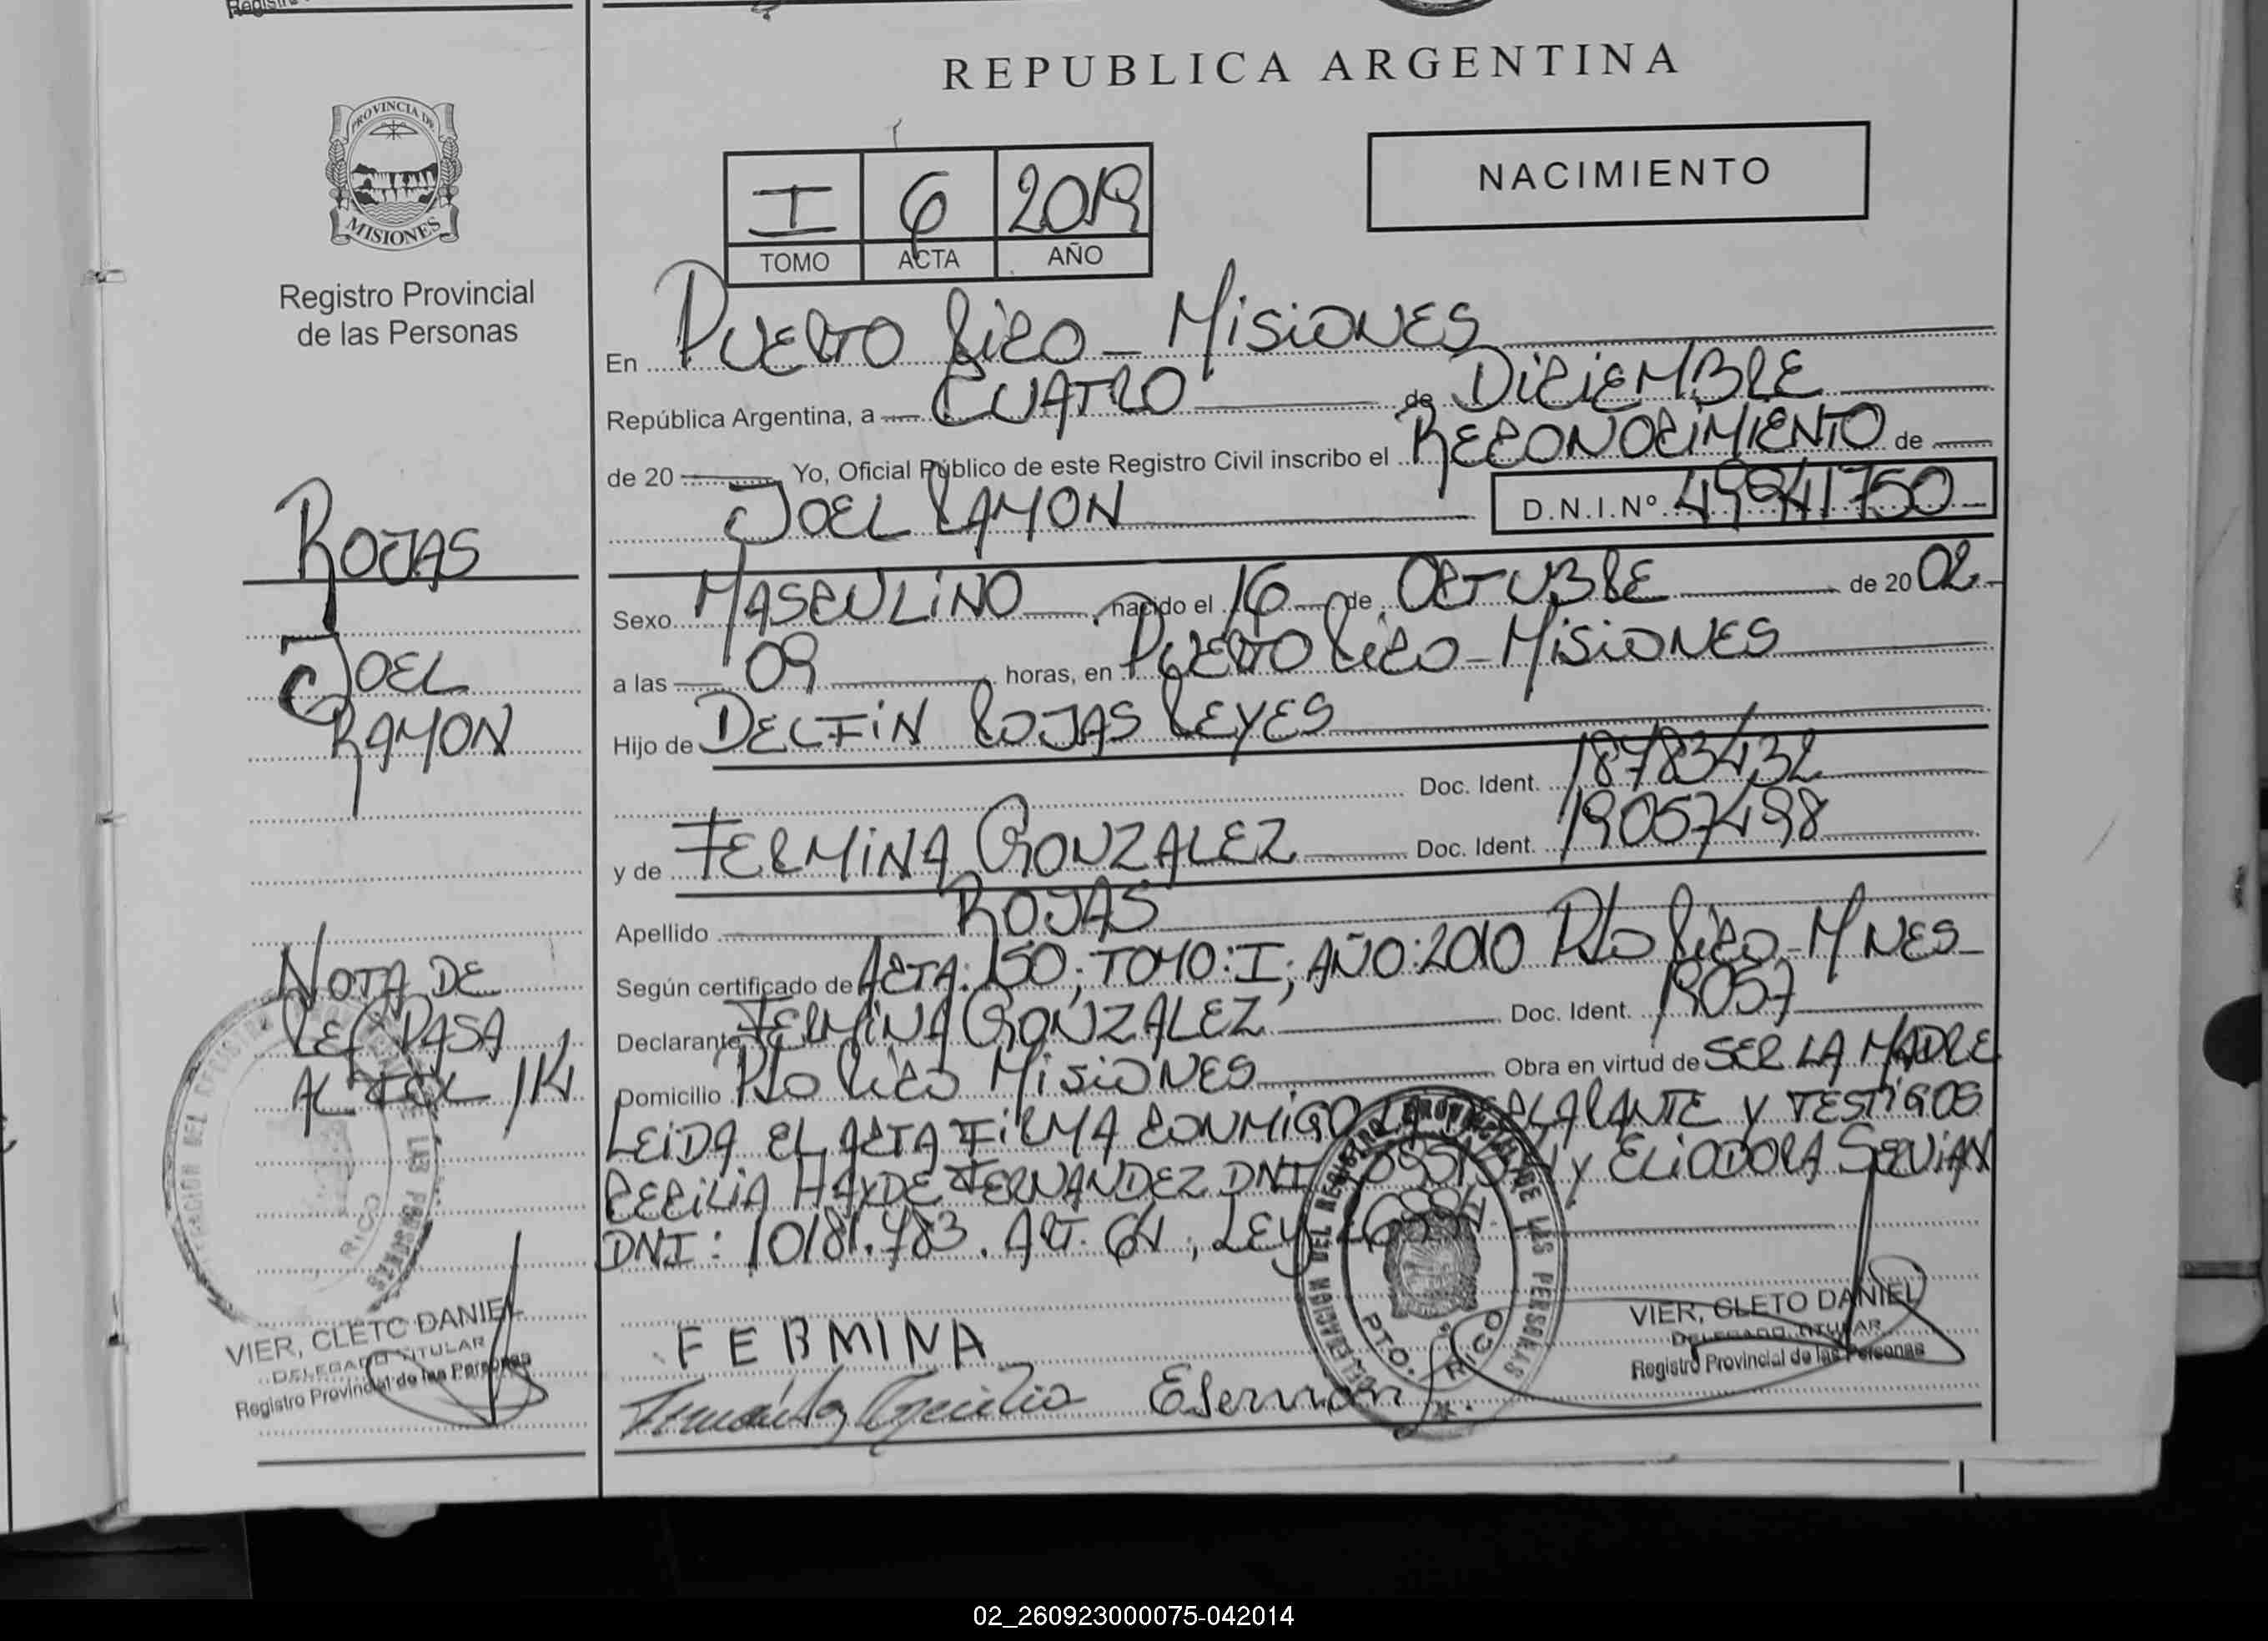 REPUBLICA ARGENTINA
PROVINCIA DE
MISIONES
Registro Provincial
de las Personas
I 6 2019
TOMO ACTA AÑO
NACIMIENTO
En PUERTO RICO - MISIONES
República Argentina, a CUATRO de DICIEMBRE
de 20 Yo, Oficial Público de este Registro Civil inscribo el RECONOCIMIENTO de
JOEL RAMON D.N.I.Nº 49941750
Sexo MASCULINO nacido el 16 de OCTUBRE de 20 02
a las 09 horas, en PUERTO RICO - MISIONES
Hijo de DELFIN ROJAS REYES
Doc. Ident. 18783432
y de FERMINA GONZALEZ Doc. Ident. 19057498
Apellido ROJAS
Según certificado de ACTA: 150; TOMO: I; AÑO: 2010 Pto RICO - MNES
Declarante FERMINA GONZALEZ Doc. Ident. 19057
Domicilio Pto RICO MISIONES Obra en virtud de SER LA MADRE
LEIDA EL ACTA FIRMA CONMIGO LA DECLARANTE Y TESTIGOS
CECILIA HAYDE FERNANDEZ DNI Y ELIODORA SERVIAN
DNI: 10181.783. ART. 64, LEY
FERMINA
Fernández Cecilia EServian
DELEGACION DEL REGISTRO PROVINCIAL DE LAS PERSONAS
PTO. RICO
VIER, CLETO DANIEL
DELEGADO TITULAR
Registro Provincial de las Personas
ROJAS
JOEL
RAMON
NOTA DE
REF PASA
AL FOL
VIER, CLETO DANIEL
DELEGADO TITULAR
Registro Provincial de las Personas
02_260923000075-042014